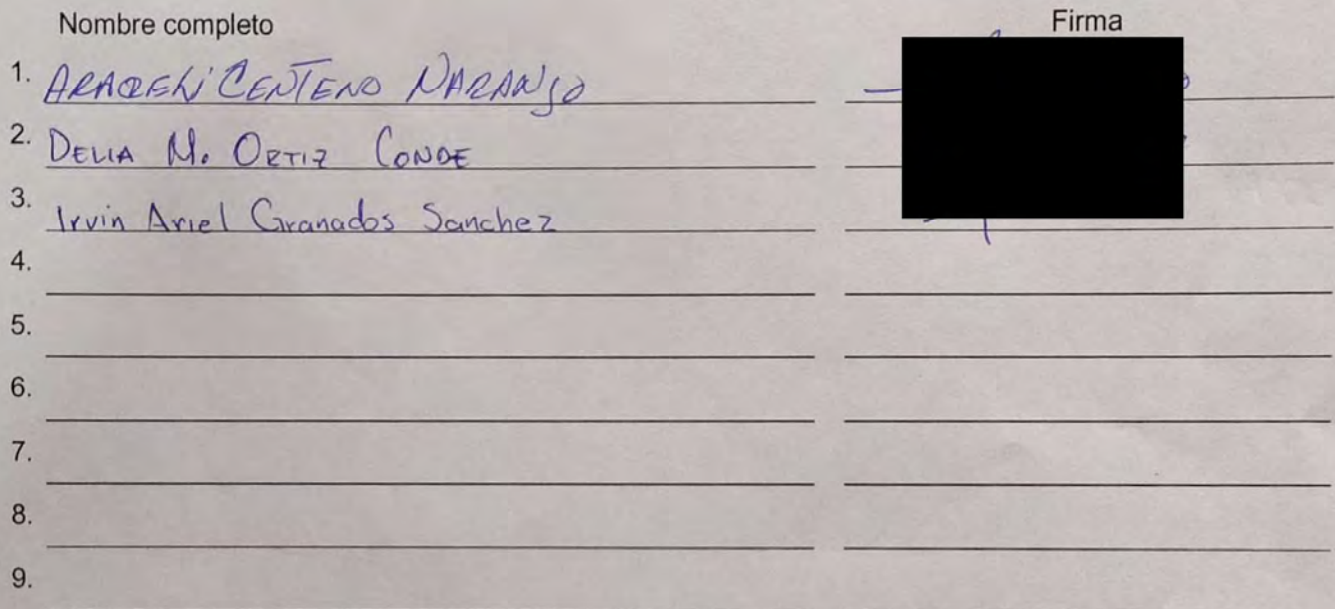 Nombre completo Firma
1. ARACELI CENTENO NARANJO
2. DELIA M. ORTIZ CONDE
3. Irvin Ariel Granados Sanchez
4.
5.
6.
7.
8.
9.